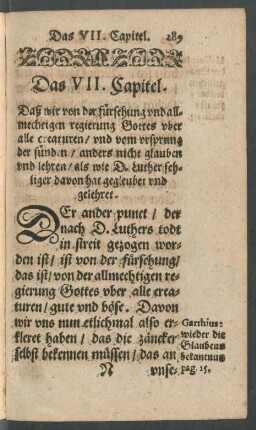 Das VII. Capitel. 289
Das VII. Capitel.
Daß wir von der fürsehung vnd all-
mechtigen regierung Gottes vber
alle creaturen/ vnd vom vrsprung
der sünden/ anders nicht glauben
vnd lehren/ als wie D. Luther seh-
liger davon hat gegleubet vnd
gelehret.
DEr ander punct/ der
nach D. Luthers todt
in streit gezogen wor-
den ist/ ist von der fürsehung/
das ist/ von der allmechtigen re-
gierung Gottes vber alle crea-
turen/ gute vnd böse. Davon
wir vns nun etlichmal also er-
kleret haben/ das die zäncker
selbst bekennen müssen/ das an
N vnse-
Garthius:
wieder die
Glaubens
bekantnus
pag. 15.